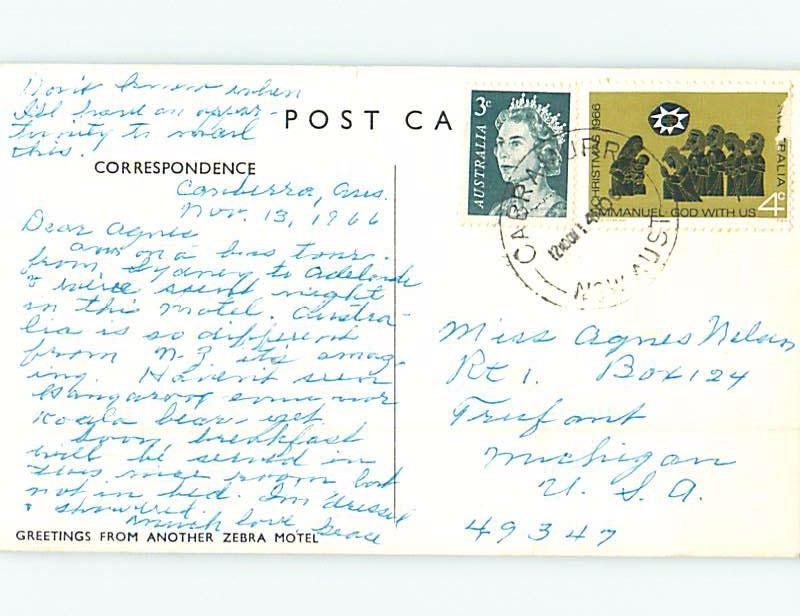 Don't know when
I'll have an oppor-
tunity to mail
this.
POST CA
CORRESPONDENCE
Canberra, Aus.
Nov. 13, 1966
Dear Agnes
am on a bus tour
from Sydney to Adelaide
& were spent night
in this motel. Austra-
lia is so different
from N-Z its amaz-
ing. Haven't seen
Kangaroos some nor
Koala bear yet.
Soon breakfast
will be served in
this nice room but
not in bed. I'm dressed
& showered.
Much love, Grace
GREETINGS FROM ANOTHER ZEBRA MOTEL
3c
AUSTRALIA
CHRISTMAS 1966
AUSTRALIA
EMMANUEL-GOD WITH US
4c
NSW AUST
Miss Agnes Nelsen
Rt 1. Box 124
Trufant
Michigan
U. S. A.
49347